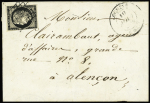 Monsieur
Clairambaut, agent
d'affaires, grande
rue N° 8,
à alençon,